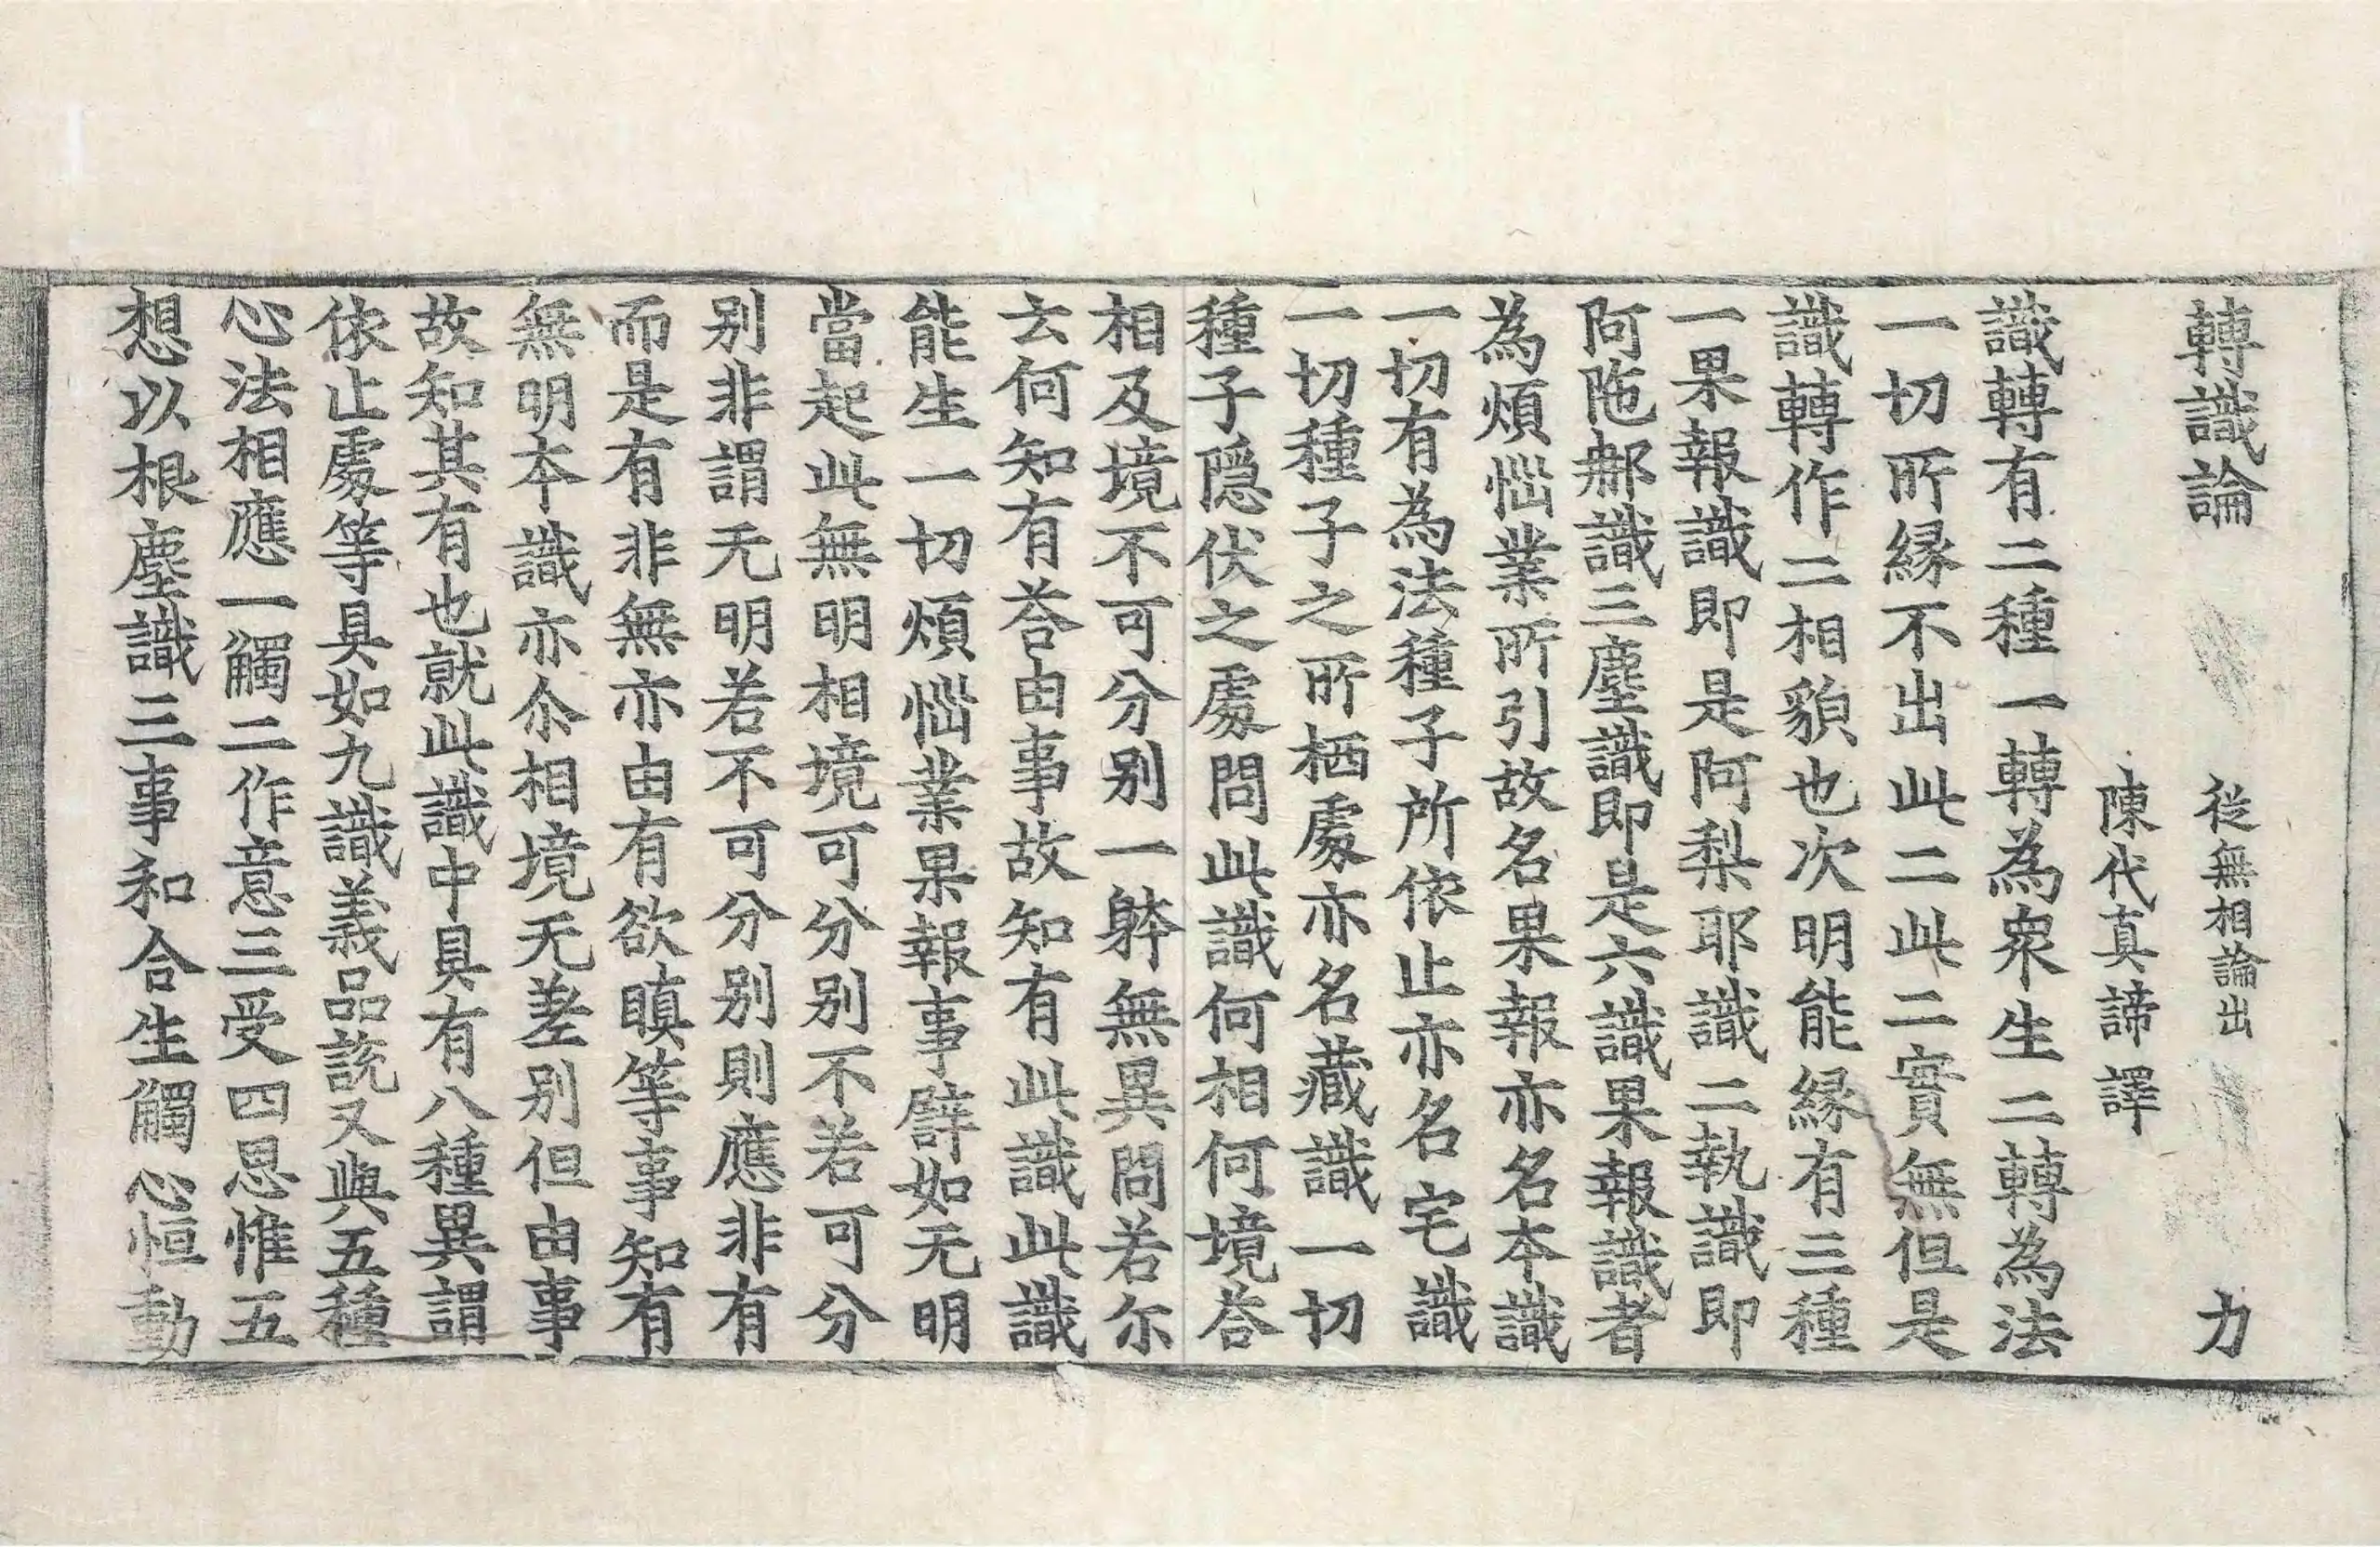 轉識論 從無相論出 力
陳代真諦譯
識轉有二種一轉為衆生二轉為法
一切所縁不出此二此二實無但是
識轉作二相貌也次明能縁有三種
一果報識即是阿梨耶識二執識即
阿陁那識三塵識即是六識果報識者
為煩惱業所引故名果報亦名本識
一切有為法種子所依止亦名宅識
一切種子之所栖處亦名藏識一切
種子隠伏之處問此識何相何境荅
相及境不可分别一躰無異問若尓
云何知有荅由事故知有此識此識
能生一切煩惱業果報事譬如无明
當起此無明相境可分别不若可分
别非謂无明若不可分别則應非有
而是有非無亦由有欲瞋等事知有
無明本識亦尒相境无差别但由事
故知其有也就此識中具有八種異謂
依止處等具如九識義品説又與五種
心法相應一觸二作意三受四思惟五
想以根塵識三事和合生觸心恒動